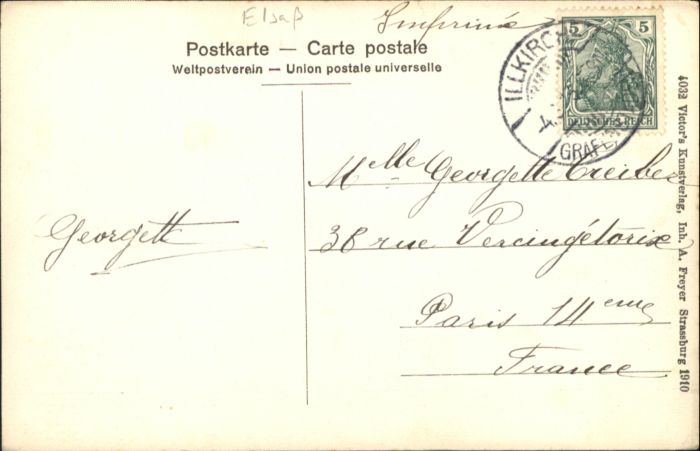 Elsaß
Imprimé
Postkarte — Carte postale
Weltpostverein — Union postale universelle
5 5
DEUTSCHES REICH
ILLKIRCH
GRAFE
Mlle Georgette
38 rue Vercingétorix
Paris 14eme
France
Georgette
4032 Victor's Kunstverlag, Inh. A. Freyer Strassburg 1910